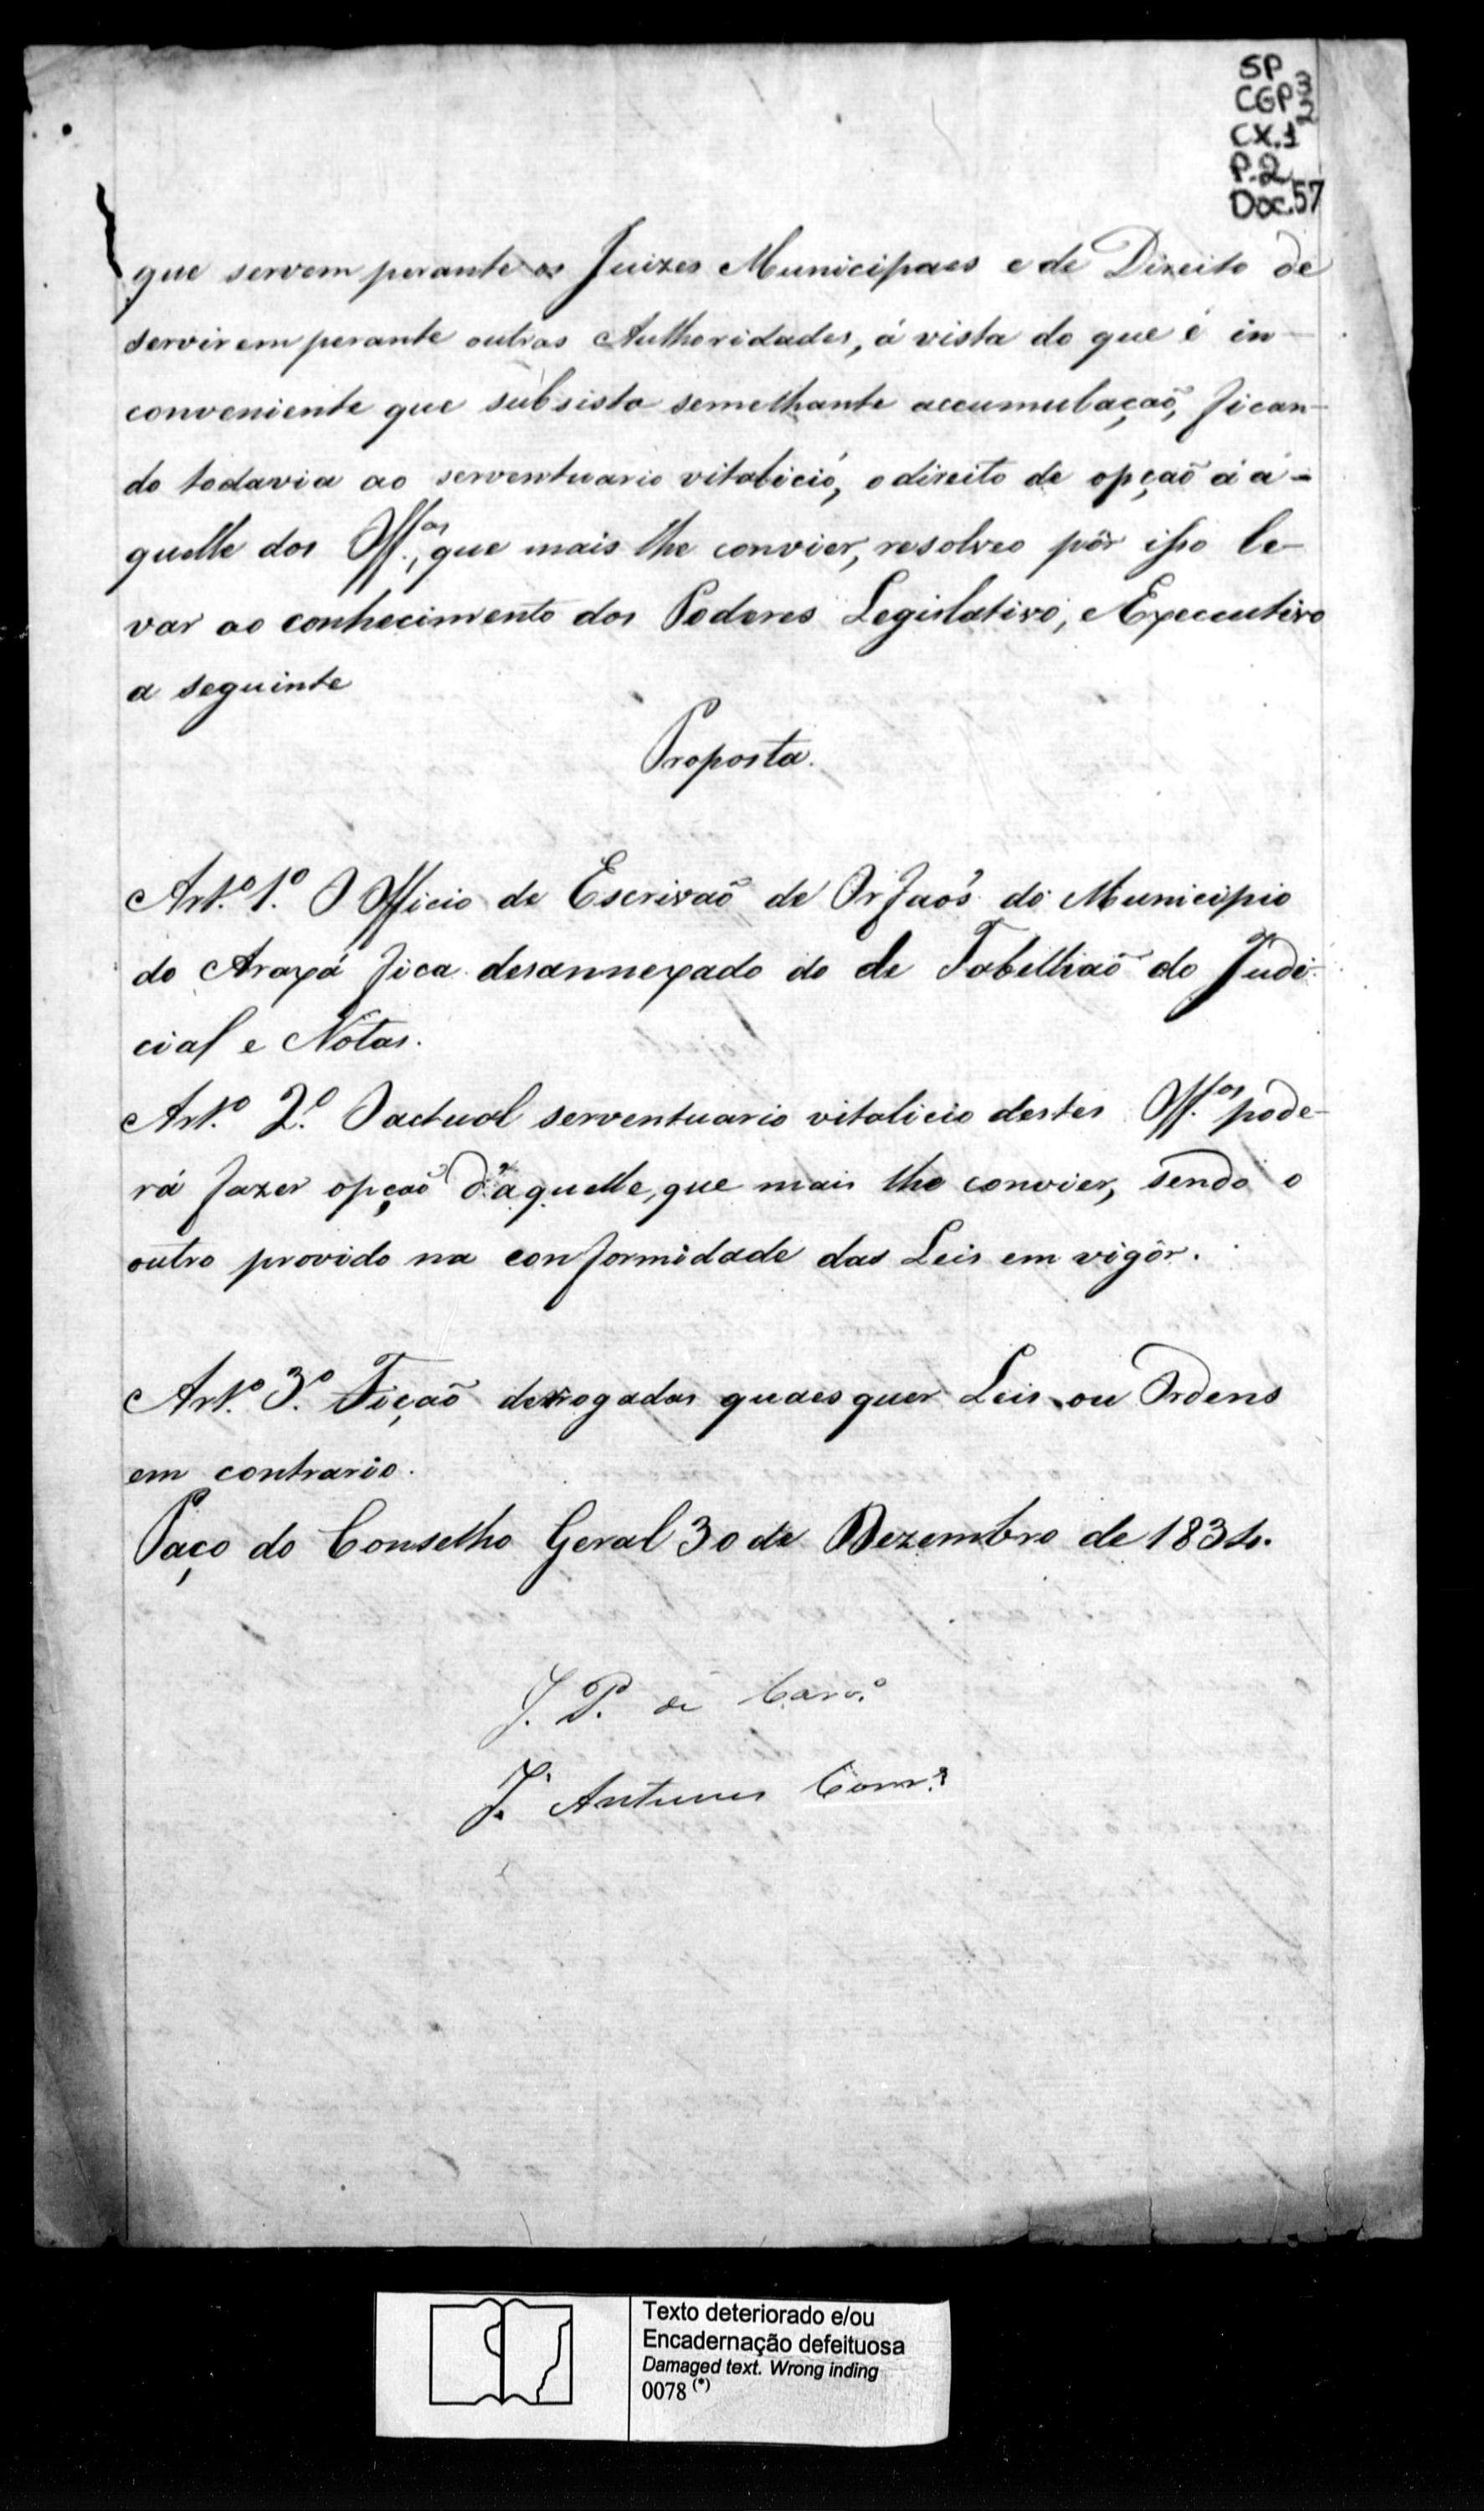 SP
CGP 3
CX.1 2
P.2
Doc.57
que servem perante os Juizes Municipaes e de Direito de
servirem perante outras Authoridades, á vista do que é in-
conveniente que subsista semelhante accumulaçaõ, fican-
do todavia ao serventuario vitalicio, o direito de opçaõ á a-
quelle dos Off.os, que mais lhe convier, resolveo pôr isso le-
var ao conhecimento dos Poderes Legislativo, e Executivo
a seguinte
Proposta.
Art.o 1.o O Officio de Escrivaõ de Orfaõs do Municipio
do Araxá fica desannexado do de Tabelliaõ do Judi-
cial e Notas.
Art.o 2.o O actual serventuario vitalicio destes Off.os pode-
rá fazer opçaõ d'aquelle, que mais lhe convier, sendo o
outro provido na conformidade das Leis em vigôr.
Art.o 3.o Ficaõ derogadas quaesquer Leis ou Ordens
em contrario.
Paço do Conselho Geral 30 de Dezembro de 1834.
J. P. de Carv.o
J. Antunes Corr.a
Texto deteriorado e/ou
Encadernação defeituosa
Damaged text. Wrong inding
0078 (*)